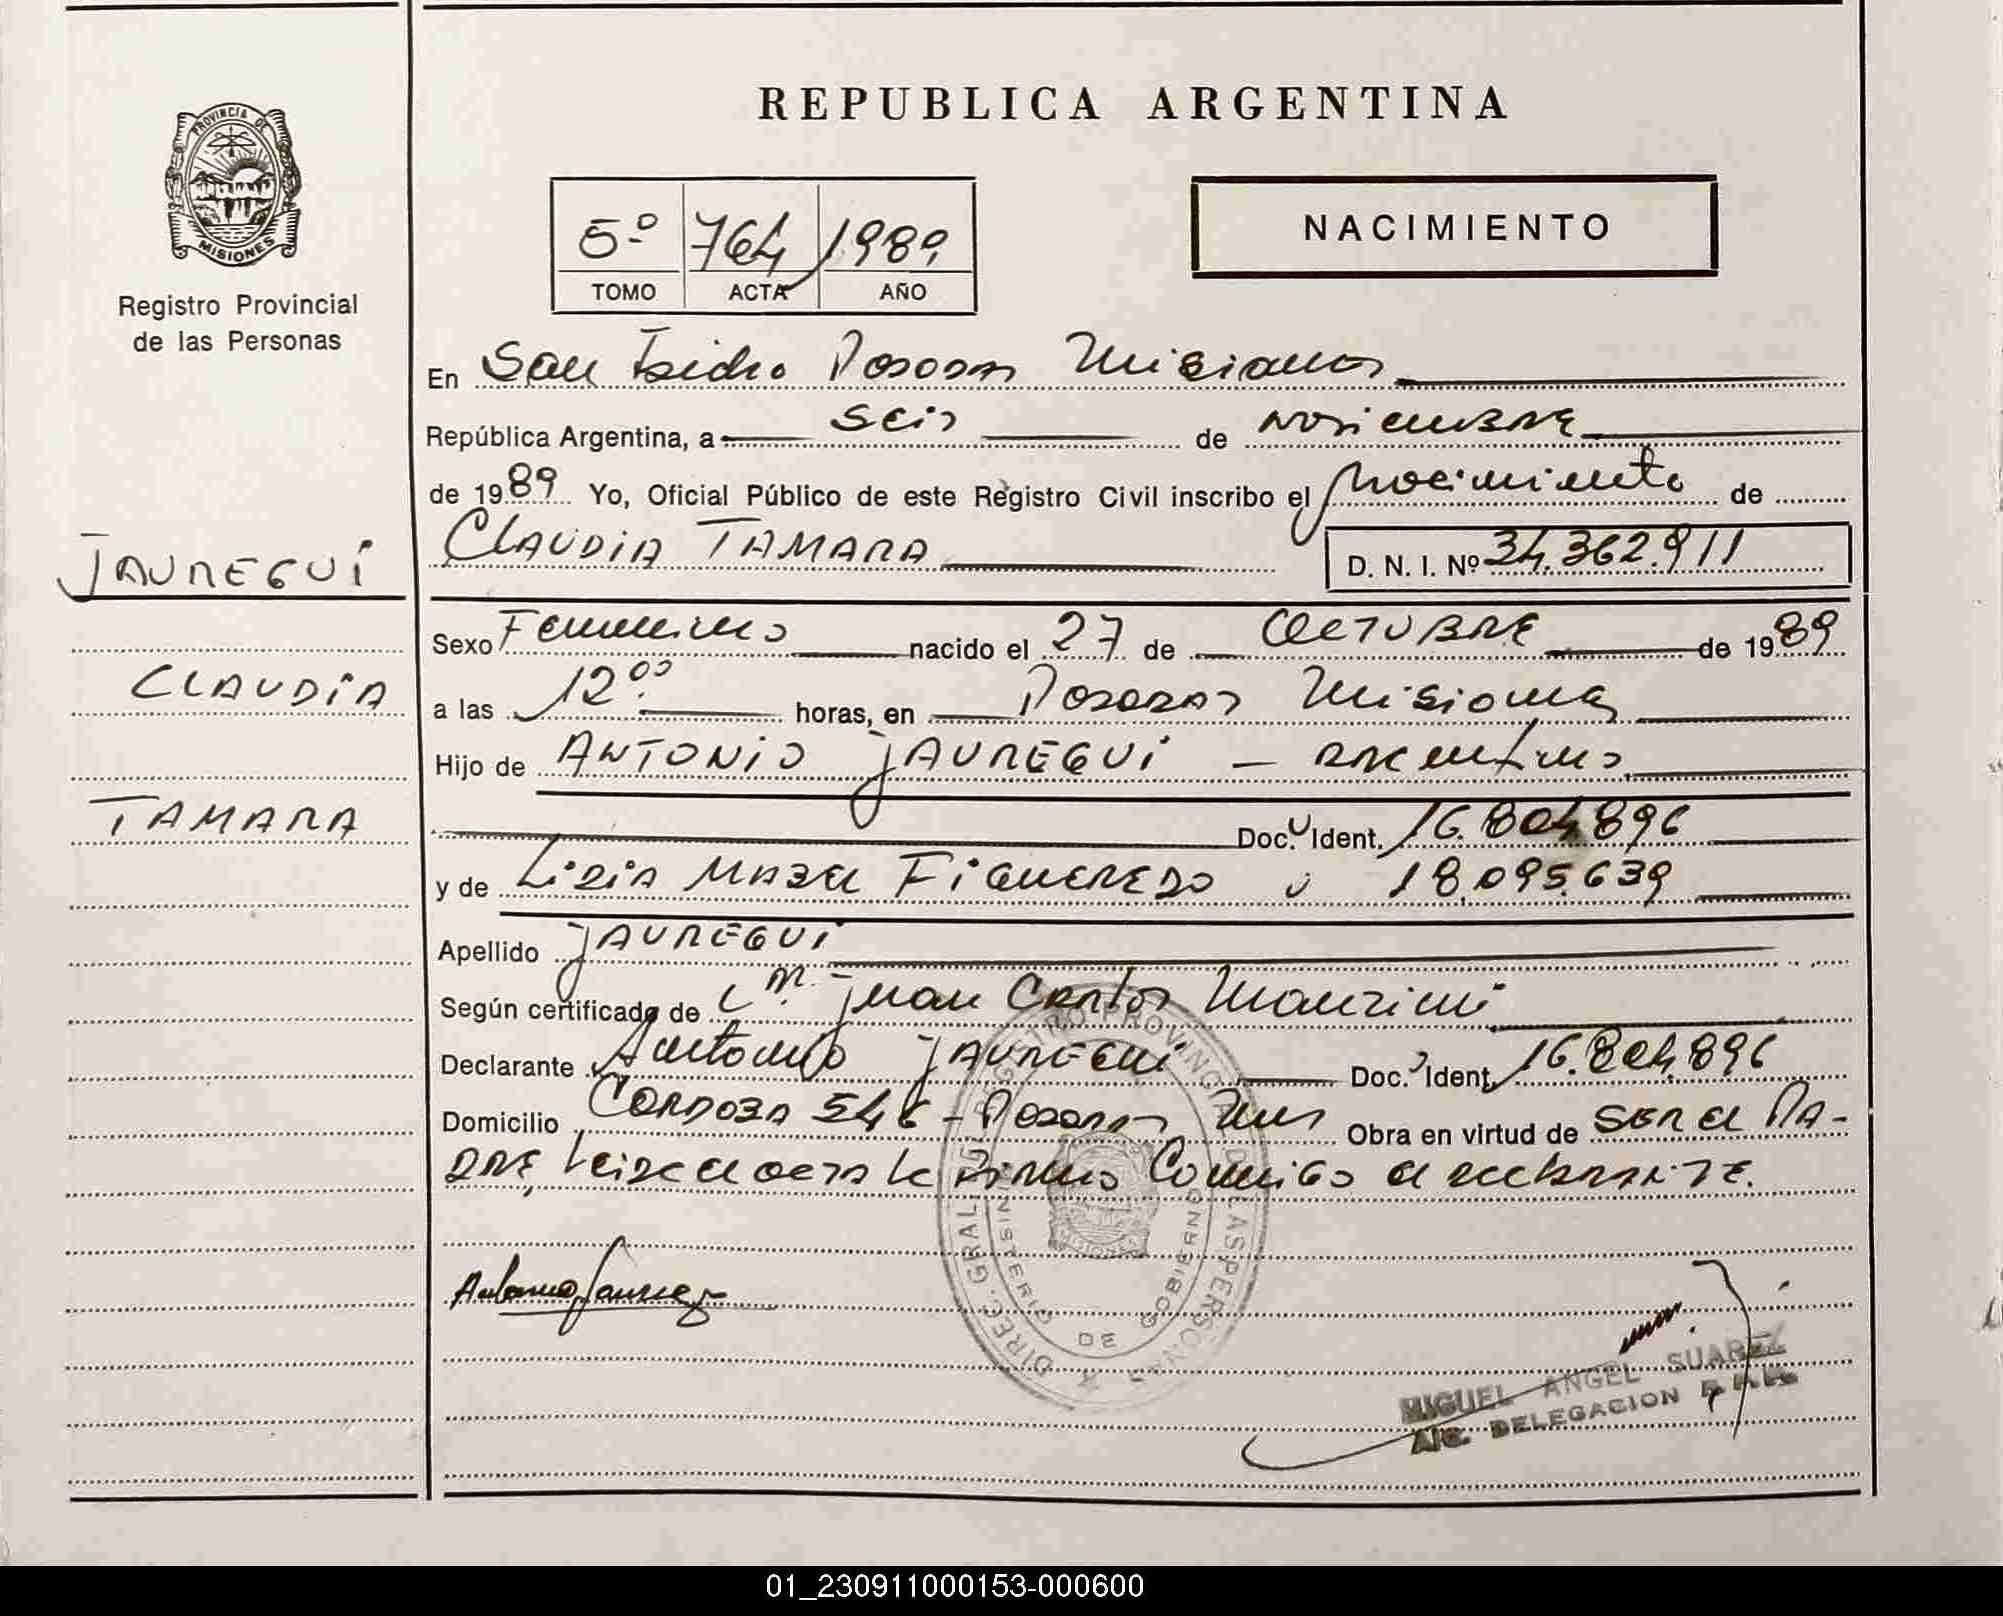 REPUBLICA ARGENTINA
PROVINCIA DE MISIONES
Registro Provincial
de las Personas
5º 764 1989
TOMO ACTA AÑO
NACIMIENTO
En San Isidro Posadas Misiones
República Argentina, a seis de noviembre
de 1989 Yo, Oficial Público de este Registro Civil inscribo el nacimiento de
CLAUDIA TAMARA D. N. I. Nº 34.362.911
JAUREGUI
CLAUDIA
TAMARA
Sexo Femenino nacido el 27 de OCTUBRE de 1989
a las 12⁰⁰ horas, en Posadas Misiones
Hijo de ANTONIO JAUREGUI – argentino
Doc. Ident. 16.804.896
y de Lidia Mabel Figueredo 18.095.639
Apellido JAUREGUI
Según certificado de Juan Carlos
Declarante Antonio JAUREGUI Doc. Ident. 16.804.896
Domicilio CORDOBA 546 – Posadas Mns Obra en virtud de SER el PA-
DRE, leida el acta la firma conmigo el declarante.
DIREC. GRAL. REGISTRO PROVINCIAL DE LAS PERSONAS
MINISTERIO DE GOBIERNO
MISIONES
Antonio Jauregui
MIGUEL ANGEL SUAREZ
A/c. DELEGACION
01_230911000153-000600